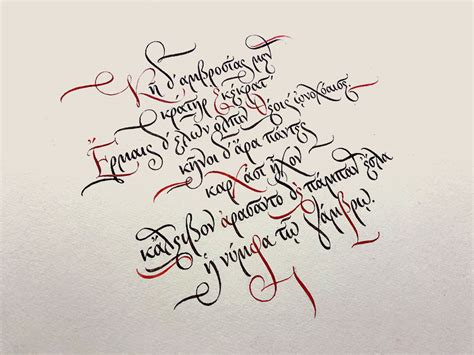 Κῆ δ' ἀμβροσίας μὲν
κράτηρ ἐκέκρατ'
Ἔρμαις δ' ἔλων ὄλπιν θέοις ᾠνοχόαισε
κῆνοι δ' ἄρα πάντες
καρχάσι' ἦχον
κἄλειβον ἀράσαντο δὲ πάμπαν ἔσλα
ἠ νύμφα τῷ γάμβρῳ.